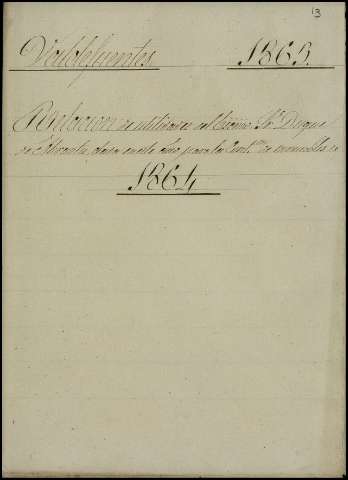 13
Valdefuentes 1863.
Relacion de utilidades del Excmo. Sr. Duque
de Abrantes, dada en este año para la de inmuebles de
1864